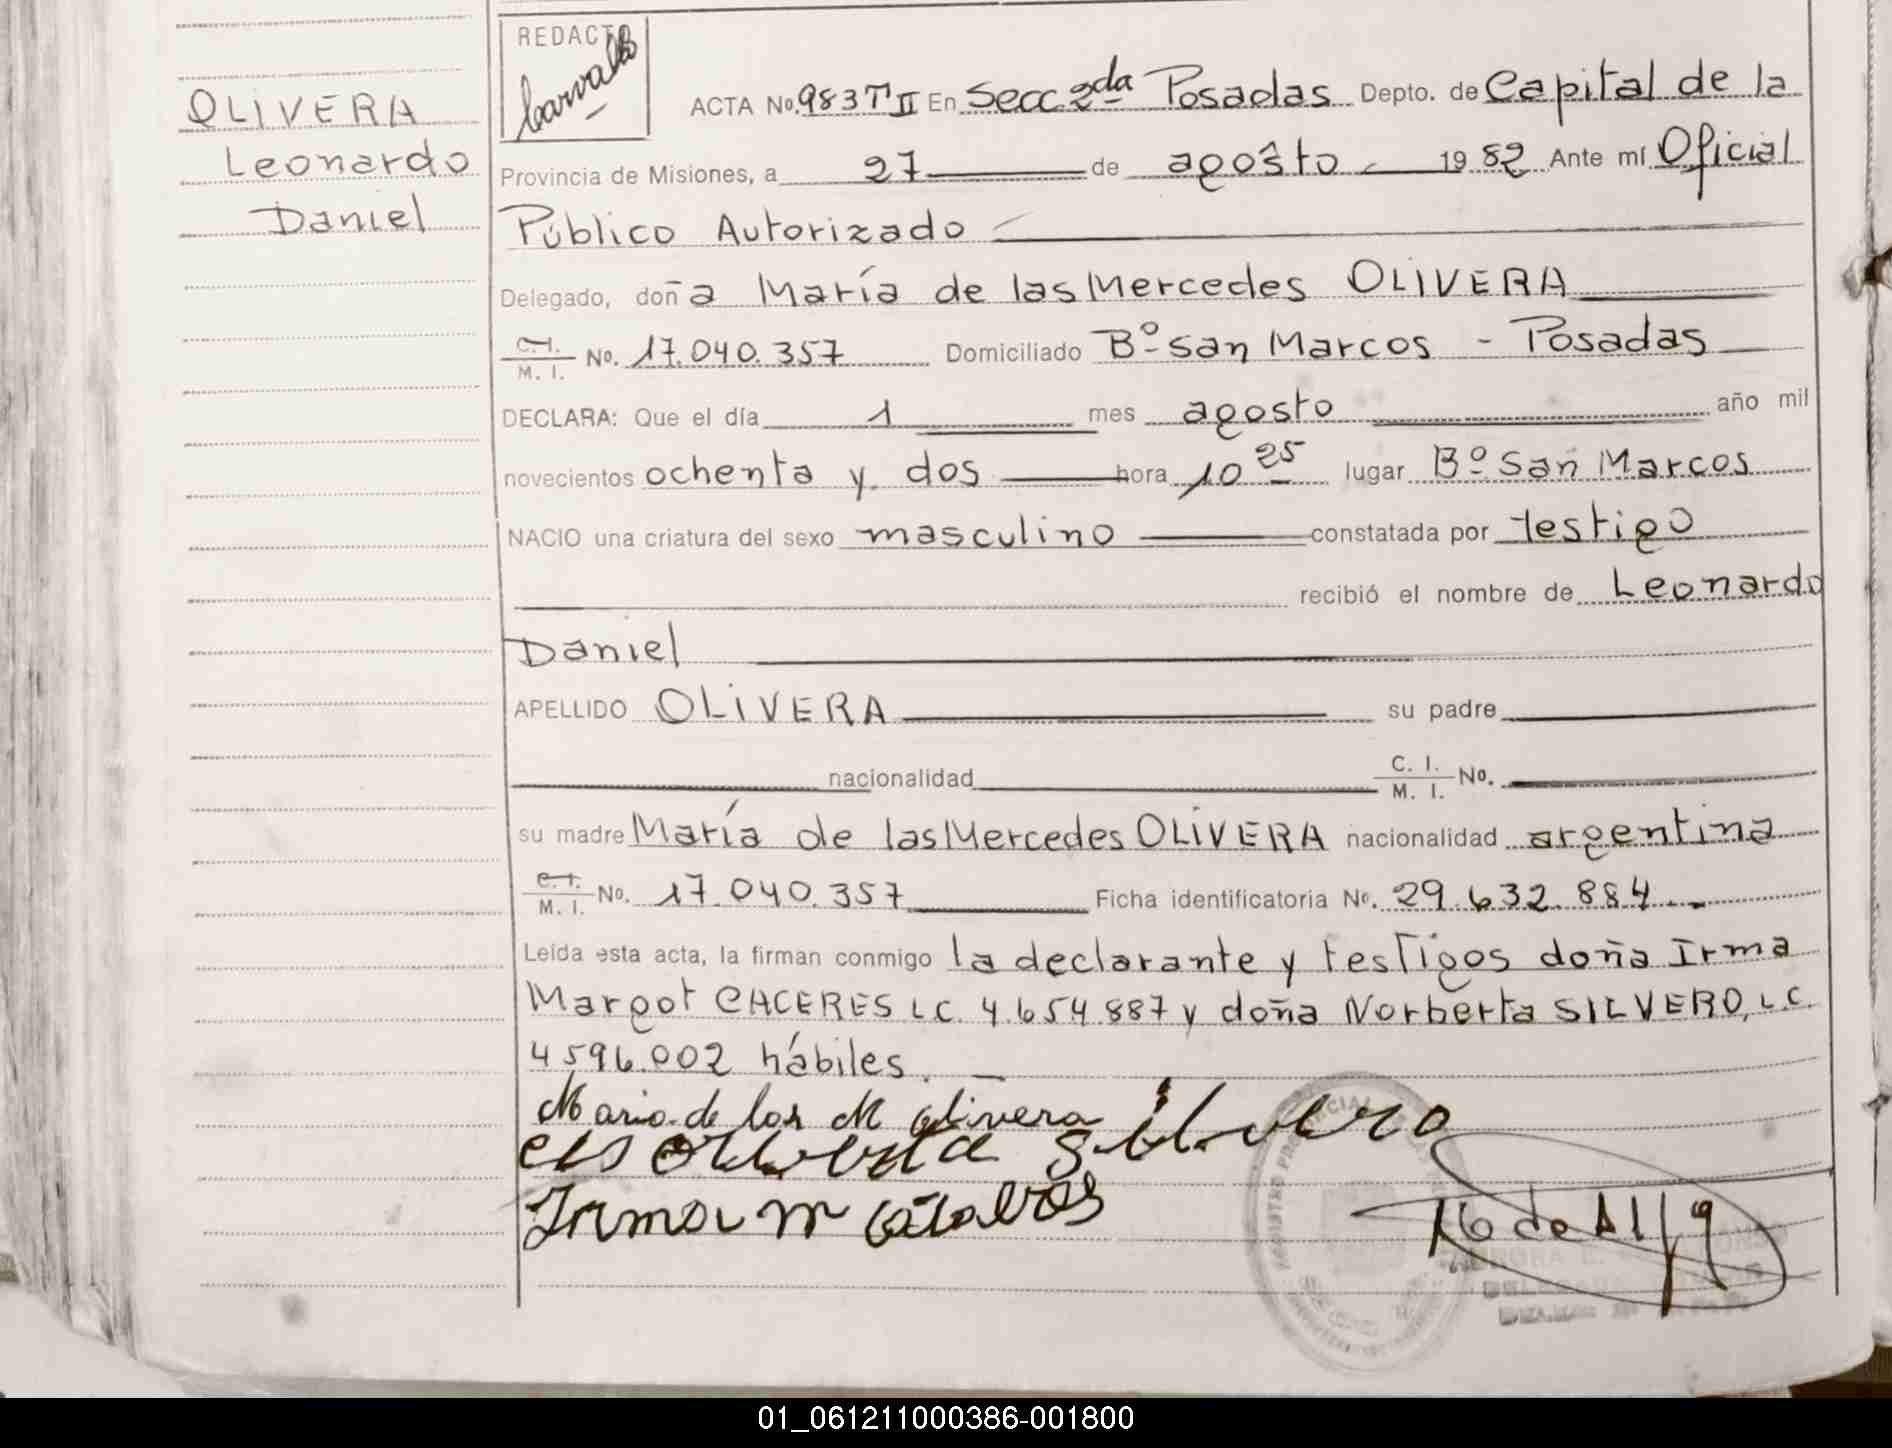 OLIVERA
Leonardo
Daniel
REDACTO
ACTA No. 983 T II En Secc 2da Posadas Depto. de Capital de la
Provincia de Misiones, a 27 de agosto 1982 Ante mí Oficial
Público Autorizado
Delegado, doña María de las Mercedes OLIVERA
C. I. / M. I. No. 17.040.357 Domiciliado Bº San Marcos - Posadas
DECLARA: Que el día 1 mes agosto año mil
novecientos ochenta y dos hora 10 25 lugar Bº San Marcos
NACIO una criatura del sexo masculino constatada por testigo
recibió el nombre de Leonardo
Daniel
APELLIDO OLIVERA su padre
nacionalidad C. I. / M. I. No.
su madre María de las Mercedes OLIVERA nacionalidad argentina
C. I. / M. I. No. 17.040.357 Ficha identificatoria No. 29.632.884
Leída esta acta, la firman conmigo la declarante y testigos doña Irma
Margot CACERES L.C. 4.654.887 y doña Norberta SILVERO, L.C.
4.596.002 hábiles.
Maria de las M Olivera
silvero
Irma M
01_061211000386-001800